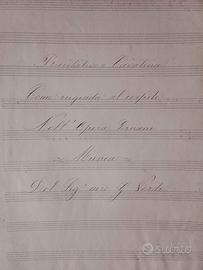 Recitativo e Cavatina
Come rugiada al cespite
Nell' Opera Ernani
Musica
Del Sig. Verdi
subito